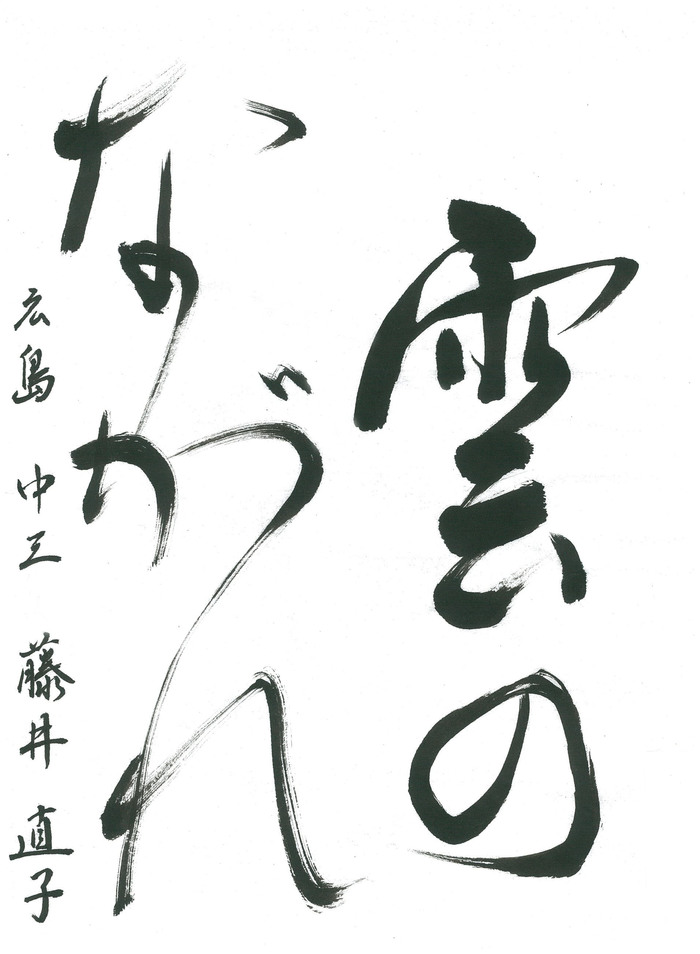 雲の
ながれ
広島 中三 藤井 直子